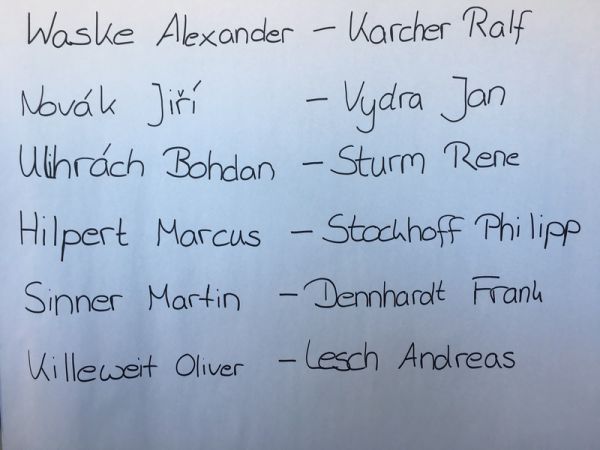 Waske Alexander - Karcher Ralf
Novák Jiří - Vydra Jan
Ulihrach Bohdan - Sturm Rene
Hilpert Marcus - Stockhoff Philipp
Sinner Martin - Dennhardt Frank
Killeweit Oliver - Lesch Andreas